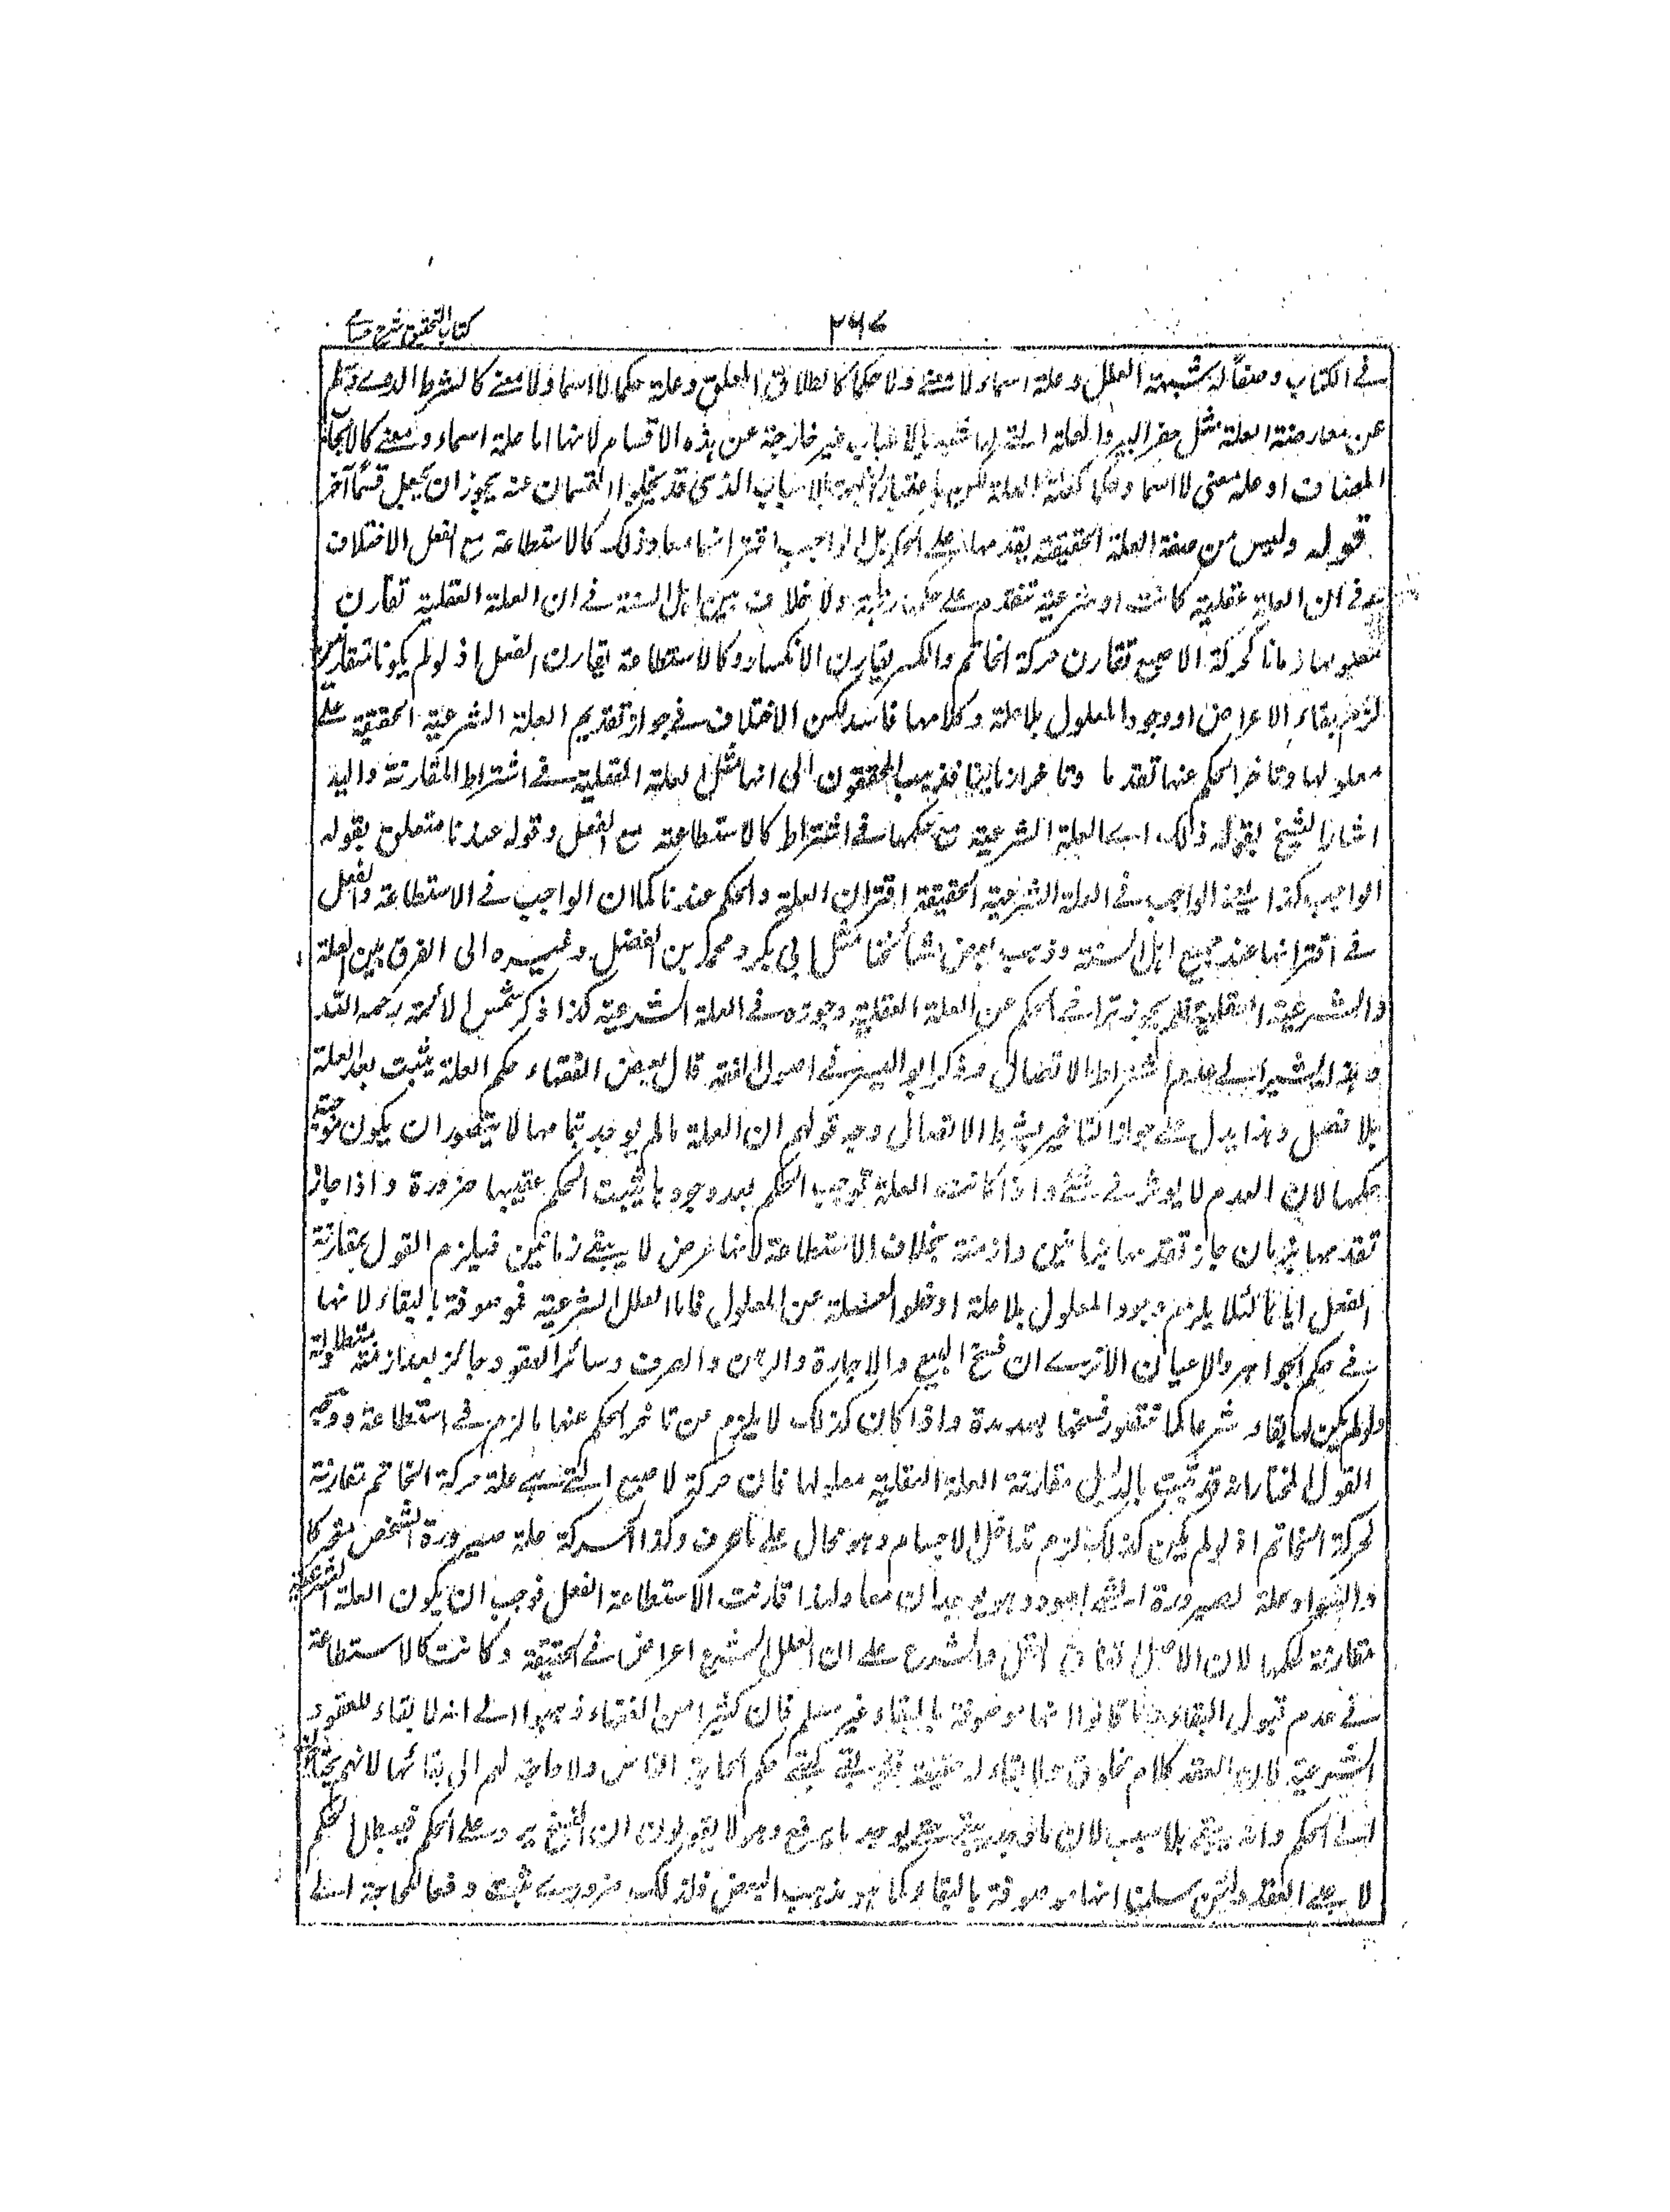 كتاب التحقيق شرح حسامي
٢٦٧
في الكتاب وصفاً له شبهة العلل وعلة اسما ولا معنى ولا حكما كالطلاق المعلق وعلة حكما لا اسما ولا معنى كالشرط الذي سلم
عن معارضة العلة مثل حفر البير والعلة التي لها شبه بالاسباب غير خارجة عن هذه الاقسام لانها اما علة اسما ومعنى كالايجاب
المضاف او علة معنى لا اسما وحكما كعلة العلة لكن باعتبار شبه الاسباب الذي قد يخلوا القسمان عنه يجوز ان يجعل قسما آخر
قوله وليس من صفة العلة الحقيقية تقدمها على الحكم بل الواجب اقترانهما معا وذلك كالاستطاعة مع الفعل الاختلاف
في ان العلة عقلية كانت او شرعية تتقدم على حكمها رتبة ولا خلاف بين اهل السنة في ان العلة العقلية تقارن
معلولها زمانا كحركة الاصبع تقارن حركة الخاتم والكسر يقارن الانكسار وكالاستطاعة يقارن الفعل اذ لو لم يكونا متقارنين
لزم بقاء الاعراض او وجود المعلول بلا علة وكلاهما فاسد لكن الاختلاف في جواز تقديم العلة الشرعية الحقيقية على
معلولها وتاخر الحكم عنها تقدما وتاخرا زمانيا فذهب المحققون الى انها مثل العلة العقلية في اشتراط المقارنة واليه
اشار الشيخ بقوله ذلك اي العلة الشرعية مع حكمها في اشتراط كالاستطاعة مع الفعل وقوله عندنا متعلق بقوله
الواجب كذا يعني الواجب في العلة الشرعية الحقيقة اقتران العلة والحكم عندنا كما ان الواجب في الاستطاعة والفعل
في اقترانهما عند جميع اهل السنة وذهب بعض مشائخنا مثل ابي بكر ومحمد بن الفضل وغيره الى الفرق بين العلة
والشرعية العقلية فلم يجوز تراخي الحكم عن العلة العقلية وجوزه في العلة الشرعية كذا ذكر شمس الائمة رحمه الله
وهذا يشير الى عدم اشتراط الاتصال وذكر ابو اليسر في اصول الفقه قال بعض الفقهاء حكم العلة يثبت بعد العلة
بلا فصل وهذا يدل على جواز التاخير بشرط الاتصال وجه قولهم ان العلة ما لم يوجد بتمامها لا يتصور ان يكون موجبة
حكمها لان العدم لا يوثر في شئ واذا كانت العلة توجب الحكم بعد وجودها يثبت الحكم عقيبها ضرورة واذا جاز
تقدمها بزمان جاز تقدمها بزمانين وازمنة بخلاف الاستطاعة لانها عرض لا يبقى زمانين فيلزم القول بمقارنة
الفعل اياها لئلا يلزم وجود المعلول بلا علة او خلو العلة عن المعلول فاما العلل الشرعية فموصوفة بالبقاء لانها
في حكم الجواهر والاعيان الا ترى ان فسخ البيع والاجارة والرهن والصرف وسائر العقود جائز بعد ازمنة متطاولة
ولو لم يكن لها بقاء شرعا لما تتصور فسخها بعد مدة واذا كان كذلك لا يلزم من تاخر الحكم عنها ما لزم في استطاعة ووجه
القول المختار انه قد ثبت بالدليل مقارنة العلة العقلية معلولها فان حركة لاصبع التي هي علة حركة الخاتم مقارنة
لحركة الخاتم اذ لو لم يكن كذلك لزم تداخل الاجسام وهو محال على ما عرف وكذا الحركة علة صيرورة الشخص متحركا
والسواد علة لصيرورة الشئ اسود وهو يوجدان معا ولهذا قارنت الاستطاعة الفعل فوجب ان يكون العلة الشرعية
مقارنة حكمها لان الاصل اتفاق العقل والشرع على ان العلل الشرع اعراض في الحقيقة وكانت كالاستطاعة
في عدم قبول البقاء وما قالوا انها موصوفة بالبقاء غير مسلم فان كثيرا من الفقهاء ذهبوا الى انه لا بقاء للعقود
الشرعية لان العقد كلام مخلوق ولا بقاء له حقيقة حكم الحاجة الناس ولا حاجة لهم الى بقائها لانهم
الى الحكم وانه يبقى بلا سبب لان ما وجد يبقى حتى يوجد ما يرفع وهولا يقولون ان الفسخ يرد على الحكم فيبطل الحكم
لا على العقد ولئن سلمنا انها موصوفة بالبقاء كما هو مذهب البعض فذلك ضروري ثبت دفعا للحاجة الى